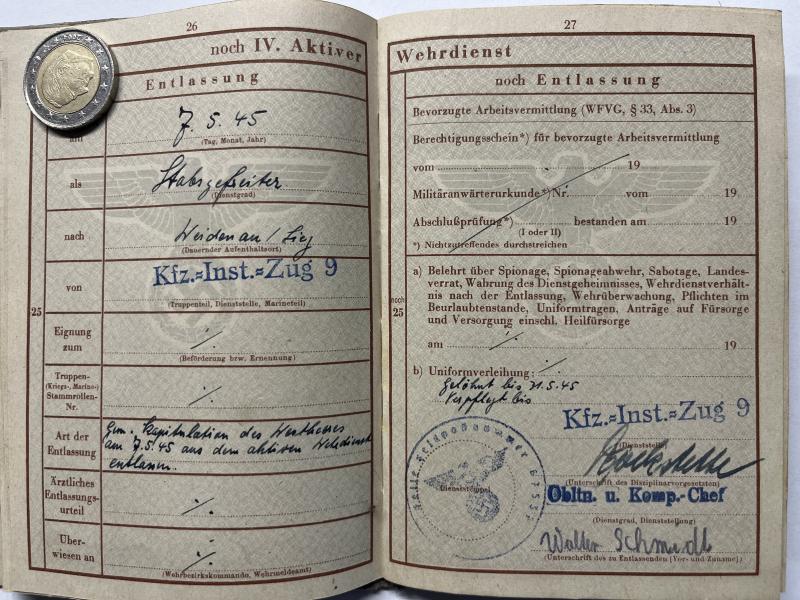 26
noch IV. Aktiver
Entlassung
2002
am 7. 5. 45
(Tag, Monat, Jahr)
als Stabsgefreiter
(Dienstgrad)
nach Weidenau / Sieg
(Dauernder Aufenthaltsort)
von Kfz.=Inst.=Zug 9
(Truppenteil, Dienststelle, Marineteil)
25
Eignung
zum ·/.
(Beförderung bzw. Ernennung)
Truppen-
(Kriegs-, Marine-)
Stammrollen-
Nr. ·/.
Art der
Entlassung
gem. Kapitulation des Westheeres
am 7.5.45 aus dem aktiven Wehrdienst
entlassen.
Ärztliches
Entlassungs-
urteil ·/.
Über-
wiesen an ·/.
(Wehrbezirkskommando, Wehrmeldeamt)
27
Wehrdienst
noch Entlassung
Bevorzugte Arbeitsvermittlung (WFVG, § 33, Abs. 3)
Berechtigungsschein*) für bevorzugte Arbeitsvermittlung
vom 19
Militäranwärterurkunde*) Nr. vom 19
Abschlußprüfung*) bestanden am 19
(I oder II)
*) Nichtzutreffendes durchstreichen
noch
25
a) Belehrt über Spionage, Spionageabwehr, Sabotage, Landes-
verrat, Wahrung des Dienstgeheimnisses, Wehrdienstverhält-
nis nach der Entlassung, Wehrüberwachung, Pflichten im
Beurlaubtenstande, Uniformtragen, Anträge auf Fürsorge
und Versorgung einschl. Heilfürsorge
am ·/. 19
b) Uniformverleihung: ·/.
Gelöhnt bis 21.5.45
Verpflegt bis
Kfz.=Inst.=Zug 9
(Dienststelle)
Feldpostnummer
Dienststempel
(Unterschrift des Disziplinarvorgesetzten)
Obltn. u. Komp.-Chef
(Dienstgrad, Dienststellung)
Walter Schmidt
(Unterschrift des zu Entlassenden [Vor- und Zuname])